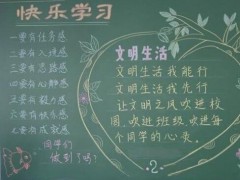 快乐学习
一要有任务感
二要有入境感
三要有思路感
四要有心静感
五要有毅力感
六要有快乐感
七要有成就感
同学们
做到了吗?
文明生活
文明生活我能行
文明生活我先行
让文明之风吹进校
园,吹进班级,吹进每
个同学的心灵。
2